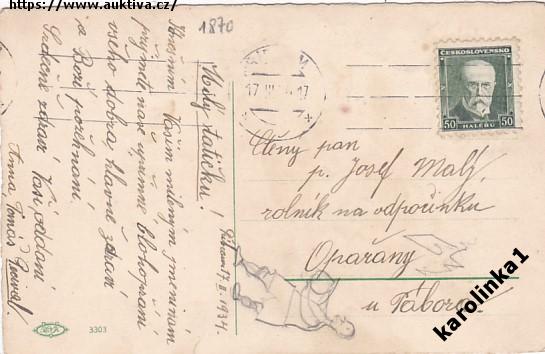 https://www.auktiva.cz/
1870
Milý tatíčku!
Ku dnům Vašim mileným jmeninám
přijměte naše upřímné blahopřání
všeho dobra, hlavně zdraví
a Boží požehnání.
Srdečně zdraví Vaši oddaní
Anna Tomáš
17. III. 1934.
17 III 17
ČESKOSLOVENSKO
50 HALÉŘŮ 50
Ctěný pan
p. Josef Malý
rolník na odpočinku
Opařany
u Tábora
3303
karolinka1